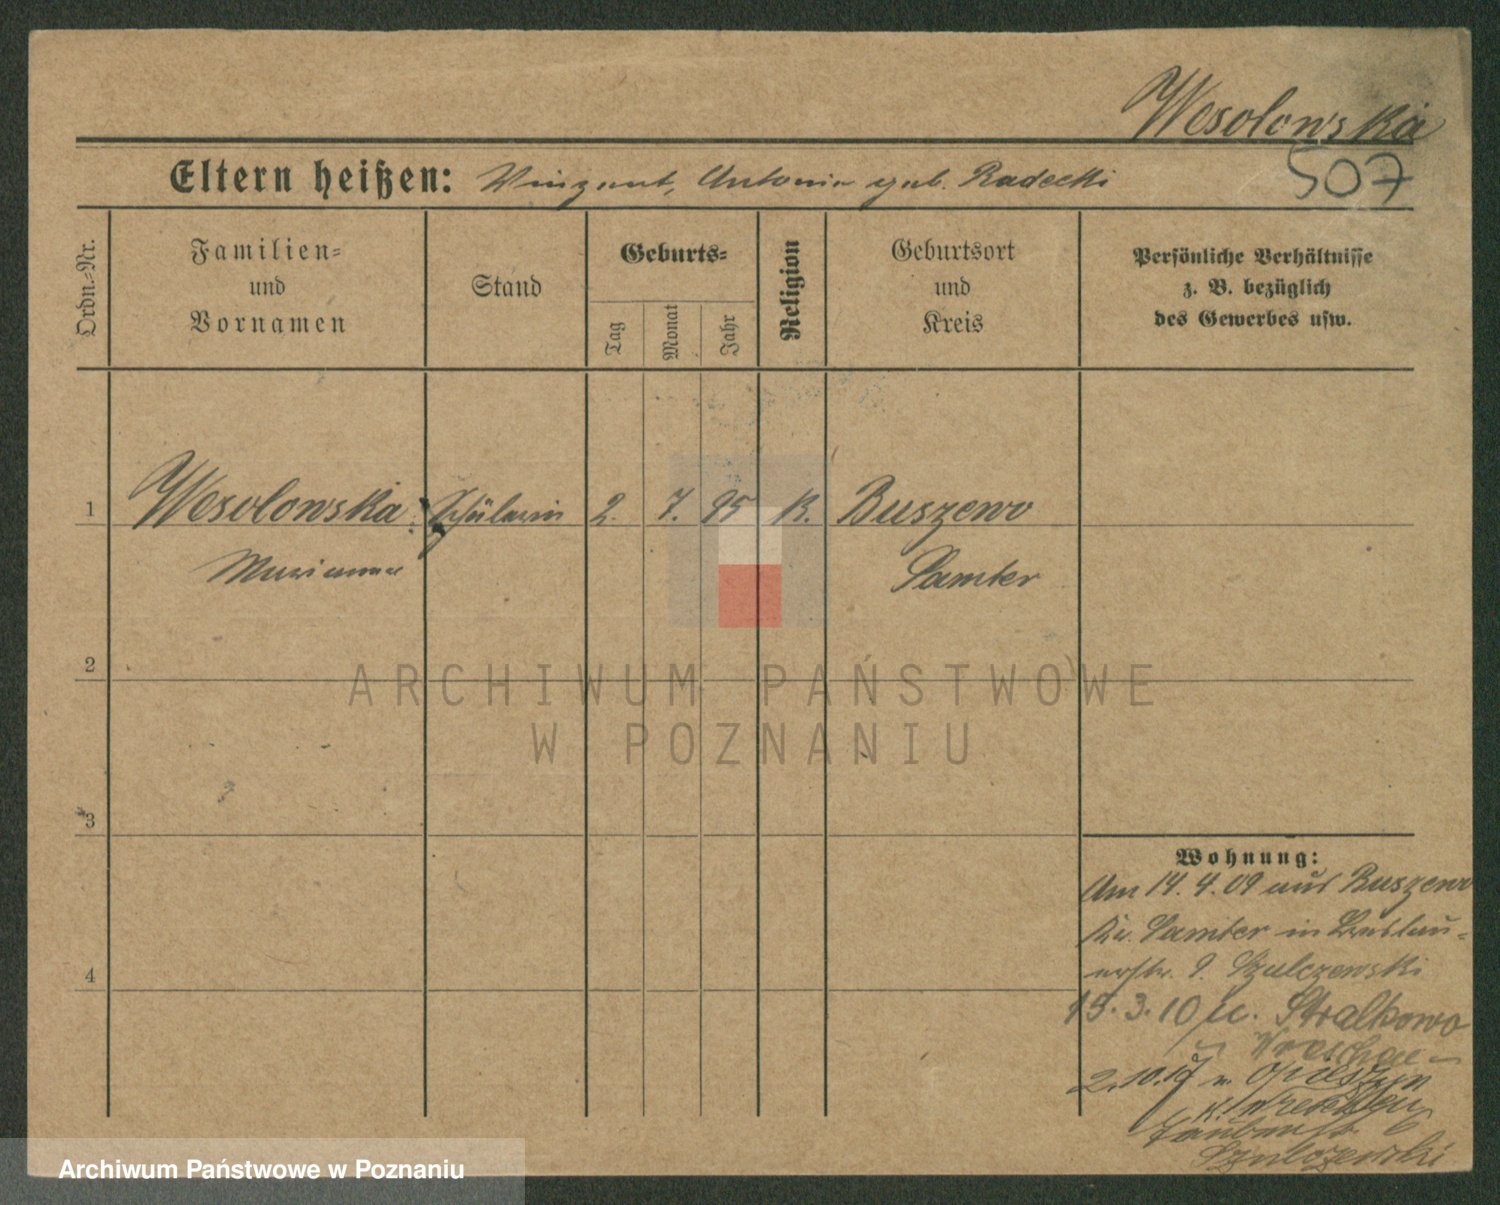 Wesolowska
507
Eltern heißen: Vinzent, Antonie geb. Radecki
Ordn.-Nr.
Familien-
und
Vornamen
Stand
Geburts-
Tag
Monat
Jahr
Religion
Geburtsort
und
Kreis
Persönliche Verhältnisse
z. B. bezüglich
des Gewerbes usw.
1 Wesolowska Schülerin 2. 7. 95 K. Buszewo
Marianna Samter
2
3
4
Wohnung:
Am 14. 4. 09 aus Buszewo
Kr. Samter in Breslau-
erstr. 9. Szulczewski
15. 3. 10 n. Stralkowo
Wreschen
2. 10. 17 v.
K. Wreschen
Szulczewski
ARCHIWUM PAŃSTWOWE
W POZNANIU
Archiwum Państwowe w Poznaniu